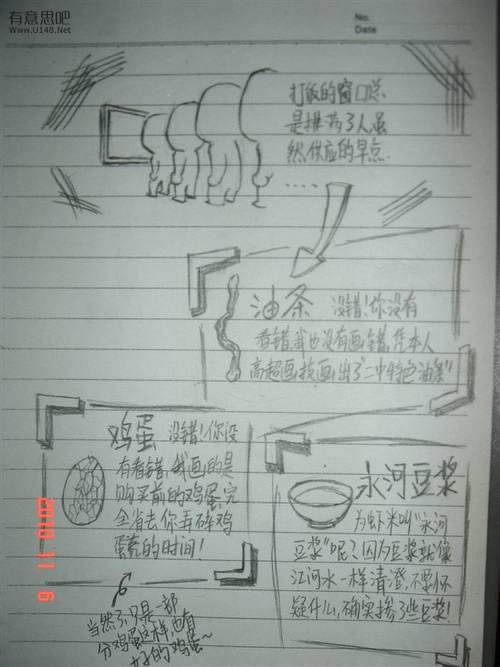 有意思吧
www.U148.Net
No.
Date
打饭的窗口总
是挤满了人虽
然供应的早点
......
油条 没错!你没有
看错,我也没有画错,凭本人
高超画技画出了"二中特色油条"
鸡蛋 没错!你没
有看错,我画的是
购买前的鸡蛋,完
全省去你弄碎鸡
蛋壳的时间!
当然不只是一部
分鸡蛋这样,也有
好的鸡蛋~
永河豆浆
为虾米叫"永河
豆浆"呢?因为豆浆就像
江河水一样清澄,不要怀
疑什么,确实掺了些豆浆!
2010 11 6